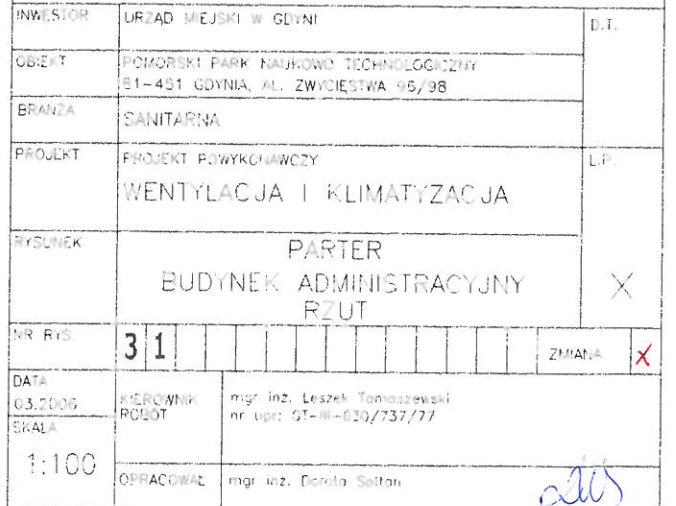 INWESTOR URZĄD MIEJSKI W GDYNI D.T.
OBIEKT POMORSKI PARK NAUKOWO TECHNOLOGICZNY
81-451 GDYNIA, AL. ZWYCIĘSTWA 96/98
BRANŻA SANITARNA
PROJEKT PROJEKT POWYKONAWCZY L.P.
WENTYLACJA I KLIMATYZACJA
RYSUNEK PARTER
BUDYNEK ADMINISTRACYJNY X
RZUT
NR RYS. 31 ZMIANA X
DATA
03.2006 KIEROWNIK mgr inż. Leszek Tomaszewski
ROBÓT nr upr: GT-III-630/737/77
SKALA
1:100
OPRACOWAŁ mgr inż. Dorota Sołtan